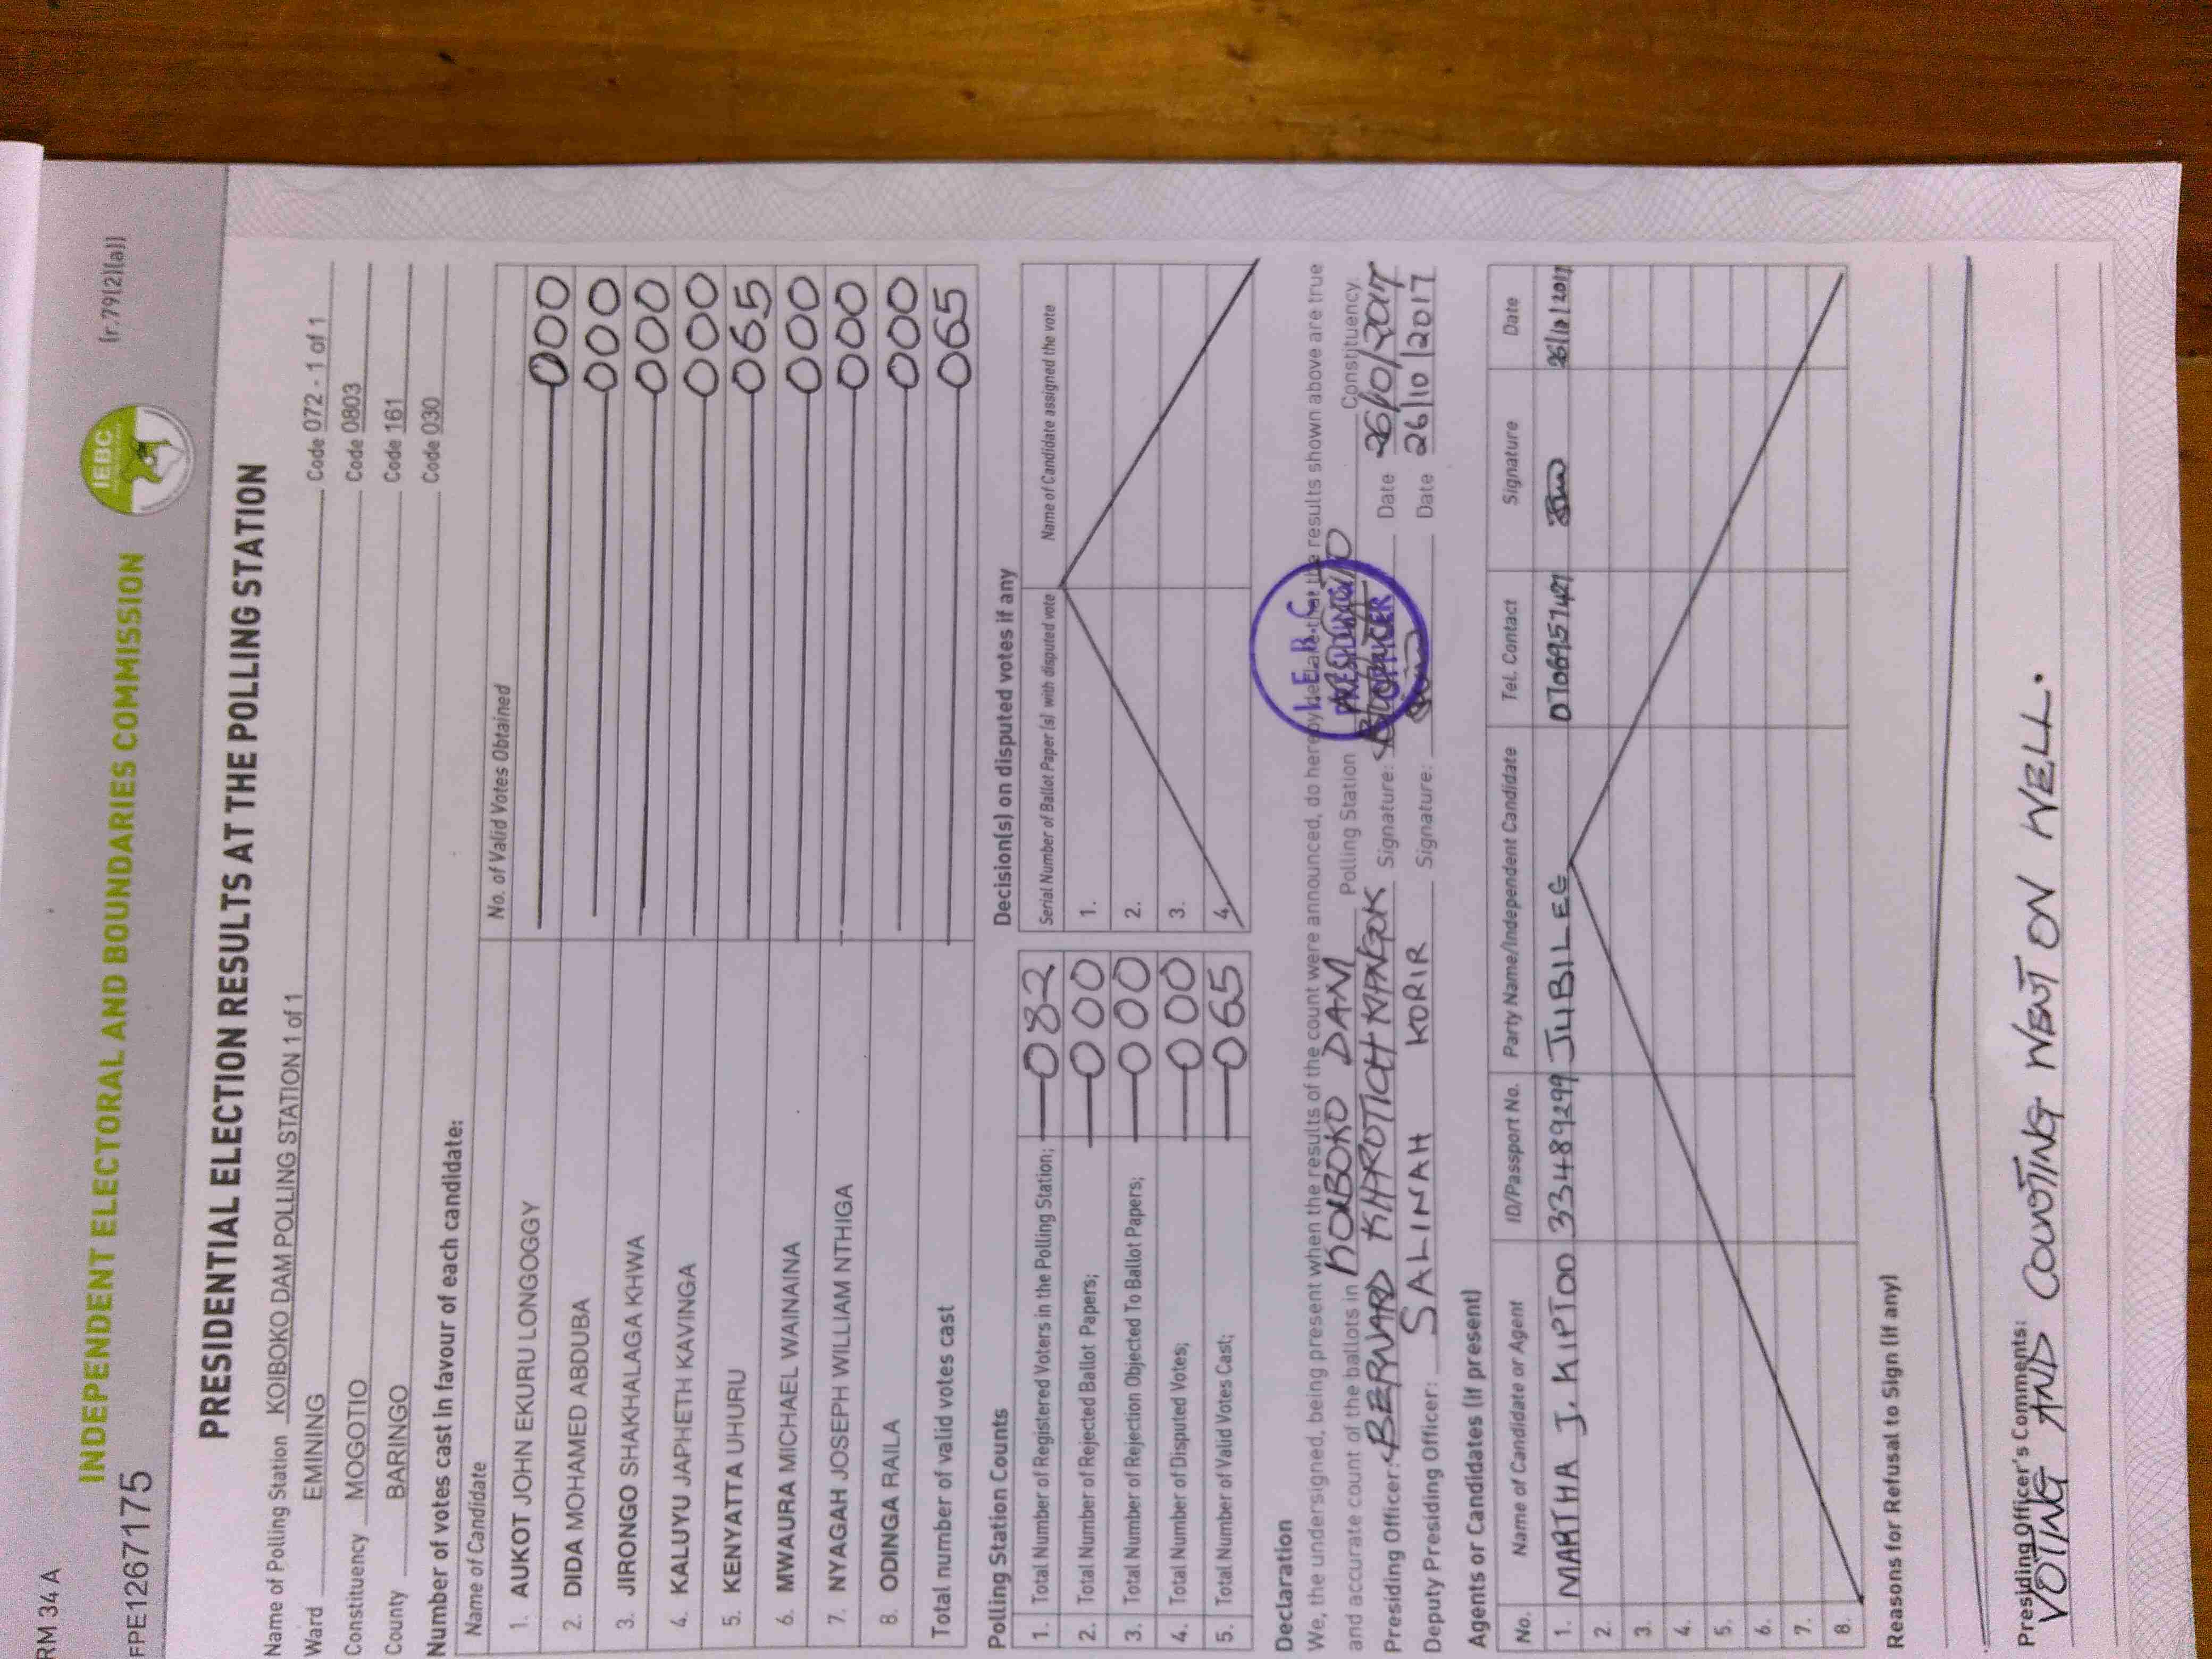 RM 34 A
(r.79(2)(a))
FPE1267175
INDEPENDENT ELECTORAL AND BOUNDARIES COMMISSION
IEBC
PRESIDENTIAL ELECTION RESULTS AT THE POLLING STATION
Name of Polling Station KOIBOKO DAM POLLING STATION 1 of 1
Ward EMINING Code 072 - 1 of 1
Constituency MOGOTIO Code 0803
County BARINGO Code 161
Code 030
Number of votes cast in favour of each candidate:
Name of Candidate No. of Valid Votes Obtained
1. AUKOT JOHN EKURU LONGOGGY 000
2. DIDA MOHAMED ABDUBA 000
3. JIRONGO SHAKHALAGA KHWA 000
4. KALUYU JAPHETH KAVINGA 000
5. KENYATTA UHURU 065
6. MWAURA MICHAEL WAINAINA 000
7. NYAGAH JOSEPH WILLIAM NTHIGA 000
8. ODINGA RAILA 000
Total number of valid votes cast 065
Polling Station Counts
1. Total Number of Registered Voters in the Polling Station; 082
2. Total Number of Rejected Ballot Papers; 000
3. Total Number of Rejection Objected To Ballot Papers; 000
4. Total Number of Disputed Votes; 000
5. Total Number of Valid Votes Cast; 065
Decision(s) on disputed votes if any
Serial Number of Ballot Paper (s) with disputed vote Name of Candidate assigned the vote
1.
2.
3.
4.
Declaration
We, the undersigned, being present when the results of the count were announced, do hereby declare that the results shown above are true
and accurate count of the ballots in KOIBOKO DAM Polling Station Constituency.
Presiding Officer: BERNARD KIPROTICH KIPNGOK Signature: Date 26/10/2017
Deputy Presiding Officer: SALINAH KORIR Signature: Date 26/10/2017
I.E.B.C
PRESIDING
OFFICER
Agents or Candidates (if present)
No. Name of Candidate or Agent ID/Passport No. Party Name/Independent Candidate Tel. Contact Signature Date
1. MARTHA J. KIPTOO 33489299 JUBILEE 26/10/2017
2.
3.
4.
5.
6.
7.
8.
Reasons for Refusal to Sign (if any)
Presiding Officer's Comments:
VOTING AND COUNTING WENT ON WELL.